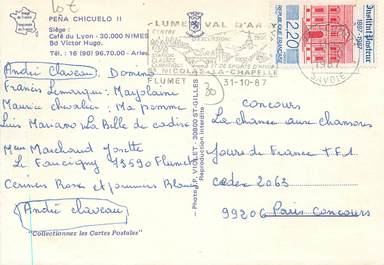 Lot
PEÑA CHICUELO II
Siège :
Café du Lyon - 30.000 NIMES
Bd Victor Hugo.
Tél. : 16 (90) 96.70.00 - Arles
André Claveau, Domino
Francis Lemarque : Marjolaine
Maurice Chevalier : Ma pomme
Luis Mariano La Belle de Cadix
Mme Marchand Josette
Le Faucigny 73590 Flumet
Cerisiers Rose et pommiers Blancs
André Claveau
"Collectionnez les Cartes Postales"
Photo J.P. VIOLET - 30800 ST-GILLES
Reproduction interdite
FLUMET VAL D'ARLY
CENTRE
NICOLAS-LA-CHAPELLE
FLUMET 31-10-87
SAVOIE
Institut Pasteur
1887-1987
2,20
30
Concours
La chance aux chansons
Jours de France TF1
cedex 2063
99206 Paris Concours